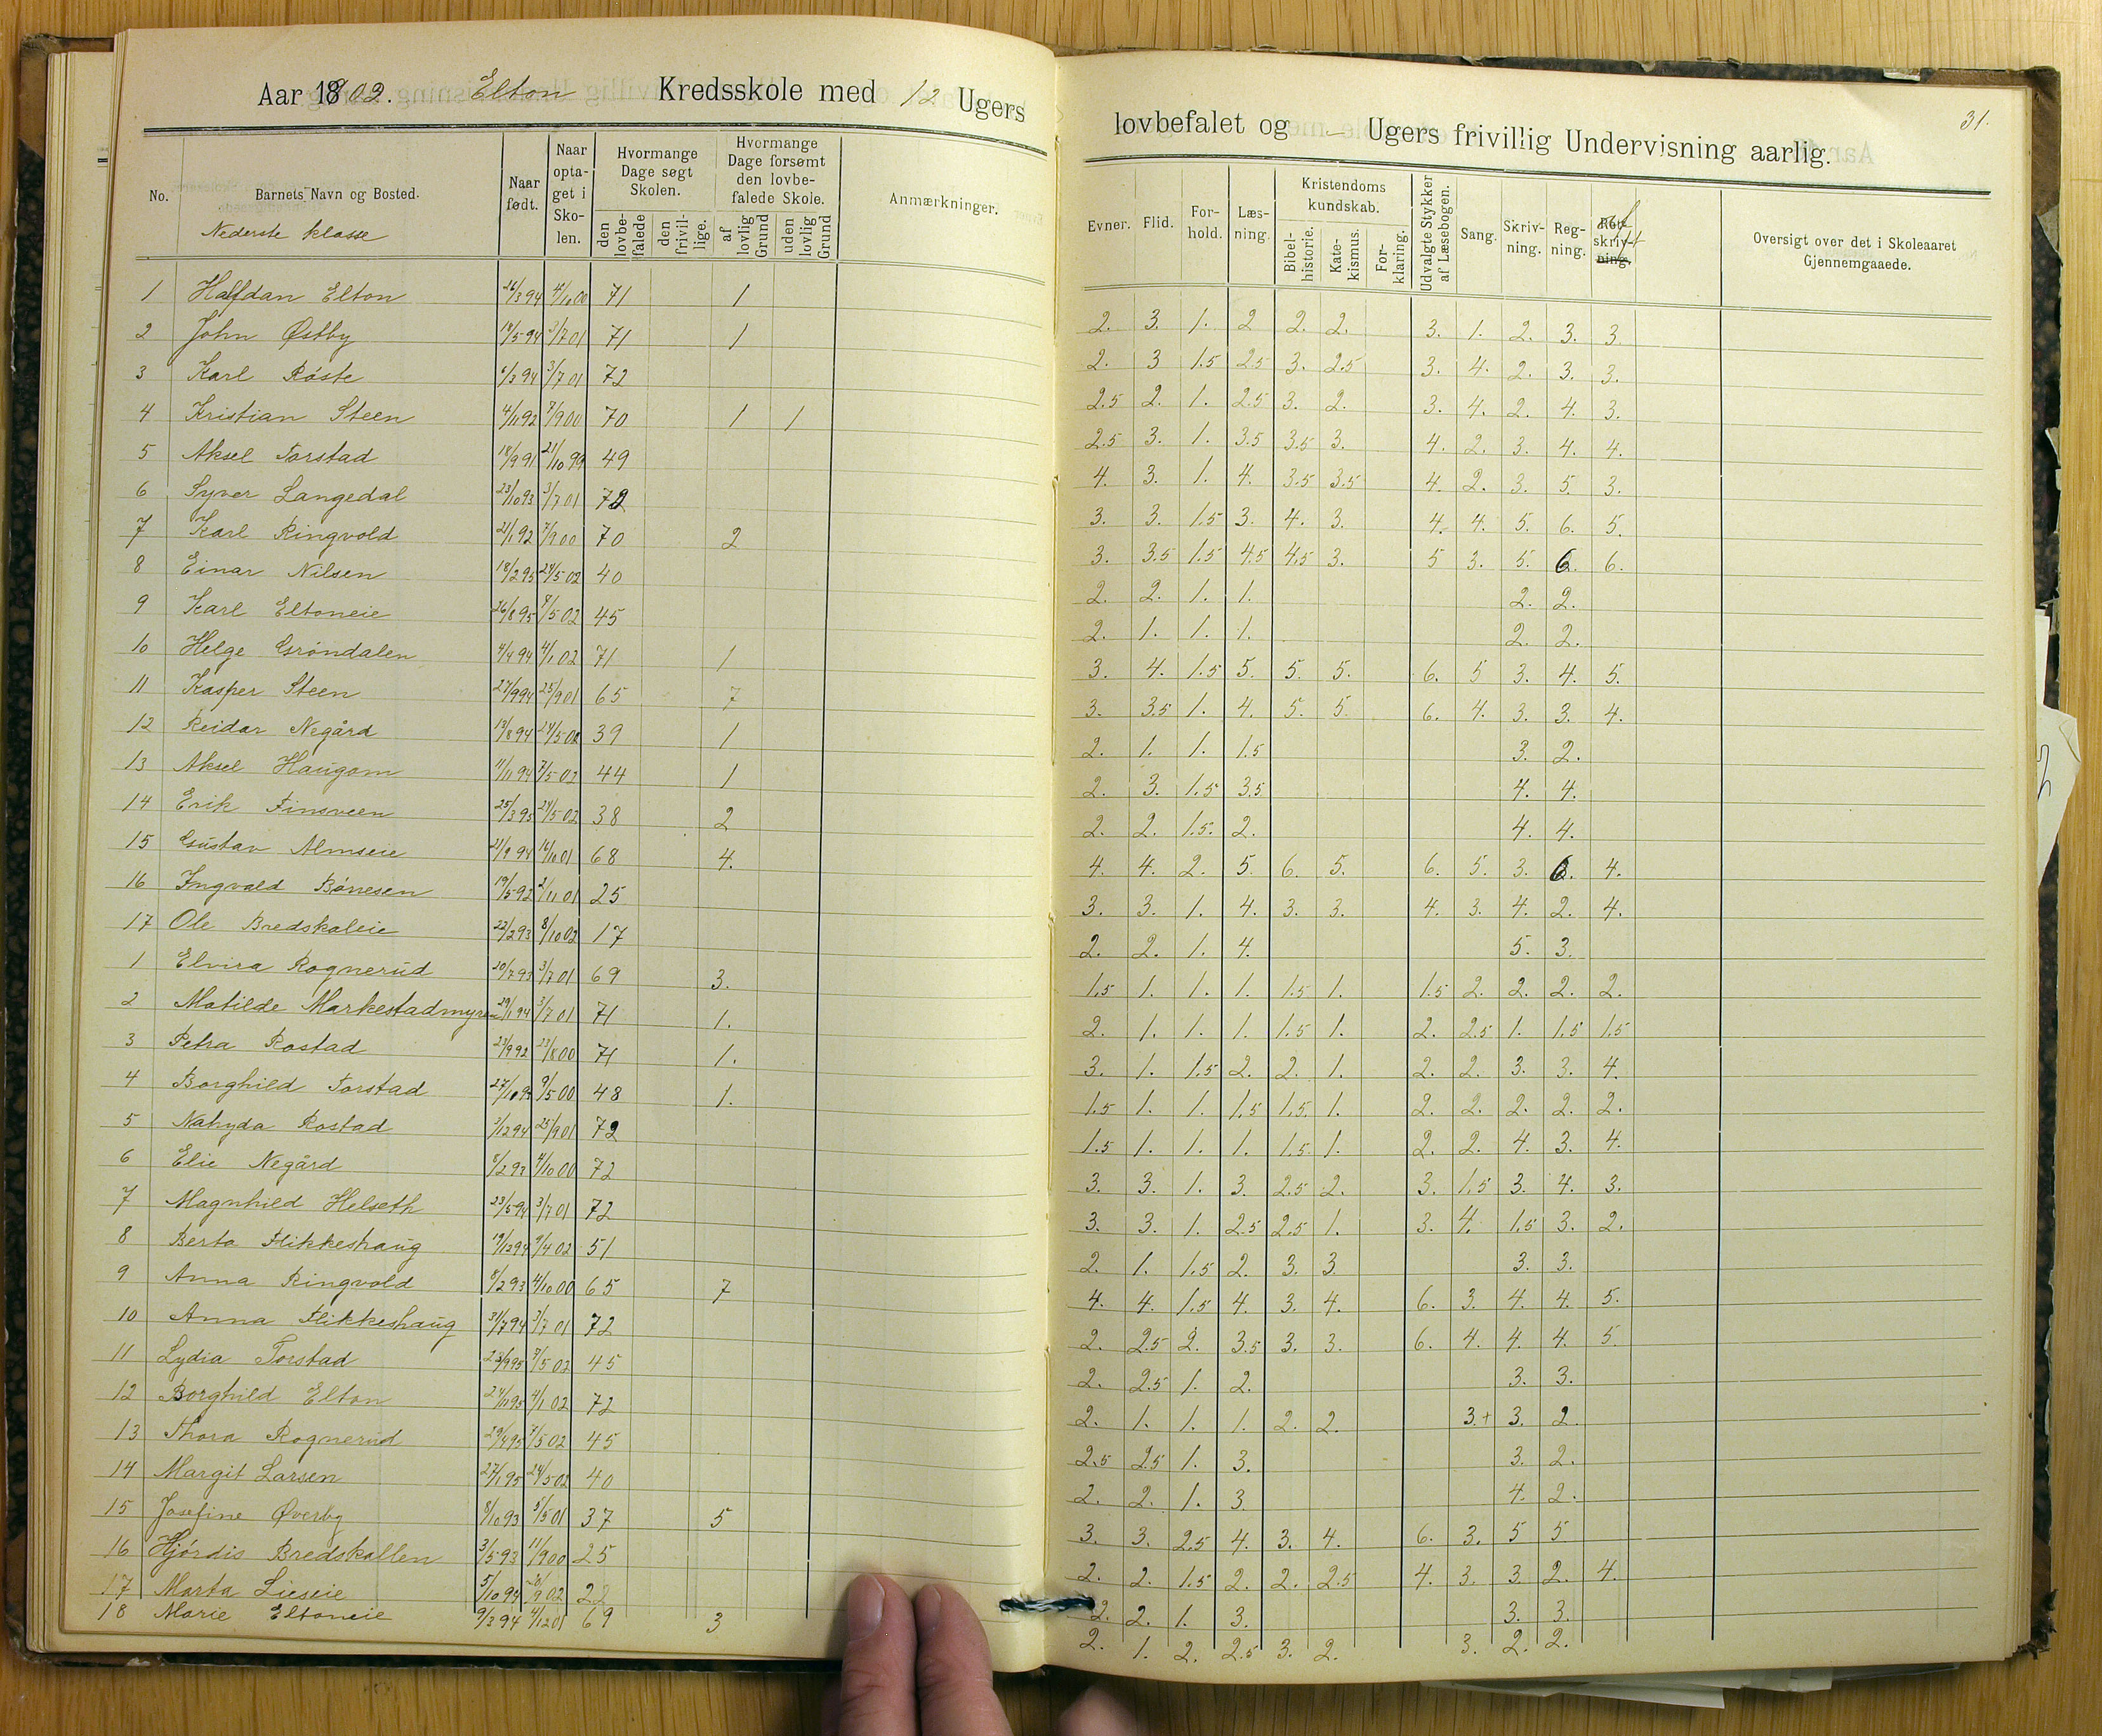 Aar 1902. Elton Kredsskole med 12 Ugers
lovbefalet og – Ugers frivillig Undervisning aarlig.
31.
No. | Barnets Navn og Bosted. | Naar født. | Naar optaget i Skolen. | Hvormange Dage søgt Skolen. den lovbefalede | den frivillige. | Hvormange Dage forsømt den lovbefalede Skole. af lovlig Grund | uden lovlig Grund | Anmærkninger.
Evner. | Flid. | Forhold. | Læsning. | Kristendomskundskab. Bibelhistorie. | Katekismus. | Forklaring. | Udvalgte Stykker af Læsebogen. | Sang. | Skrivning. | Regning. | Retskrivning. | Oversigt over det i Skoleaaret Gjennemgaaede.
Nederste klasse
1 Halfdan Elton 26/3 94 4/10 00 71 1 2. 3. 1. 2 2. 2. 3. 1. 2. 3. 3
2 John Østby 18/5 94 3/7 01 71 1 2. 3 1.5 2.5 3. 2.5 3. 4. 2. 3. 3.
3 Karl Røste 6/3 94 3/7 01 72 2.5 2. 1. 2.5 3. 2. 3. 4. 2. 4. 3.
4 Kristian Steen 4/11 92 7/9 00 70 1 1 2.5 3. 1. 3.5 3.5 3. 4. 2. 3. 4. 4.
5 Aksel Torstad 18/9 91 21/10 99 49 4. 3. 1. 4. 3.5 3.5 4. 2. 3. 5. 3.
6 Syver Langedal 23/10 93 3/7 01 72 3. 3. 1.5 3. 4. 3. 4. 4. 5. 6. 5.
7 Karl Ringvold 21/1 92 7/9 00 70 2 3. 3.5 1.5 4.5 4.5 3. 5 3. 5. 6. 6.
8 Einar Nilsen 18/2 95 24/5 02 40 2. 2. 1. 1. 2. 2.
9 Karl Eltoneie 26/8 95 7/5 02 45 2. 1. 1. 1. 2. 2.
10 Helge Grøndalen 4/4 94 4/1 02 71 1 3. 4. 1.5 5. 5. 5. 6. 5 3. 4. 5.
11 Kasper Steen 27/9 94 25/9 01 65 7 3. 3.5 1. 4. 5. 5. 6. 4. 3. 3. 4.
12 Reidar Negård 13/8 94 24/5 02 39 1 2. 1. 1. 1.5 3. 2.
13 Aksel Haugom 11/11 94 7/5 02 44 1 2. 3. 1.5 3.5 4. 4.
14 Erik Finsveen 25/3 95 24/5 02 38 2 2. 2. 1.5. 2. 4. 4.
15 Gustav Almseie 21/9 94 16/10 01 68 4. 4. 4. 2. 5. 6. 5. 6. 5. 3. 6. 4.
16 Ingvald Bønesen 19/5 92 2/11 01 25 3. 3. 1. 4. 3. 3. 4. 3. 4. 2. 4.
17 Ole Bredskaleie 22/2 93 8/10 02 17 2. 2. 1. 4. 5. 3.
1 Elvira Rognerud 20/7 93 3/7 01 69 3. 1.5 1. 1. 1. 1.5 1. 1.5 2. 2. 2. 2.
2 Matilde Markestadmyren 29/1 94 3/7 01 71 1. 2. 1. 1. 1. 1.5 1. 2. 2.5 1. 1.5 1.5
3 Petra Rostad 23/9 92 23/8 00 71 1. 3. 1. 1.5 2. 2. 1. 2. 2. 3. 3. 4.
4 Borghild Torstad 27/10 9/5 00 48 1. 1.5 1. 1. 1.5 1.5. 1. 2. 2. 2. 2. 2.
5 Nahyda Rostad 3/12 94 25/9 01 72 1.5 1. 1. 1. 1.5 1. 2. 2. 4. 3. 4.
6 Elie Negård 8/2 93 4/10 00 72 3. 3. 1. 3. 2.5 2. 3. 1.5 3. 4. 3.
7 Magnhild Helseth 23/5 94 3/7 01 72 3. 3. 1. 2.5 2.5 1. 3. 4. 1.5 3. 2.
8 Berta Flikkeshaug 19/12 94 9/4 02 51 2. 1. 1.5 2. 3. 3. 3. 3.
9 Anna Ringvold 8/2 93 4/10 00 65 7 4. 4. 1.5 4. 3. 4. 6. 3. 4. 4. 5.
10 Anna Flikkeshaug 31/7 94 3/7 01 72 2. 2.5 2. 3.5 3. 3. 6. 4. 4. 4. 5
11 Lydia Torstad 23/9 95 7/5 02 45 2. 2.5 1. 2. 3. 3.
12 Borghild Elton 24/11 95 4/1 02 72 2. 1. 1. 1. 2. 2. 3.+ 3. 2.
13 Thora Rognerud 29/4 95 7/5 02 45 2.5 2.5 1. 3. 3. 2.
14 Margit Larsen 27/1 95 24/5 02 40 2. 2. 1. 3. 4. 2.
15 Josefine Øverby 8/10 93 5/5 01 37 5 3. 3. 2.5 4. 3. 4. 6. 3. 5 5
16 Hjørdis Bredskallen 3/5 93 11/9 00 25 2. 2. 1.5 2. 2. 2.5 4. 3. 3. 2. 4.
17 Marta Lieseie 5/10 94 9 02 22 2. 2. 1. 3. 3. 3.
18 Marie Eltoneie 9/3 94 4/12 01 69 3 2. 1. 2. 2.5 3. 2. 3. 2. 2.